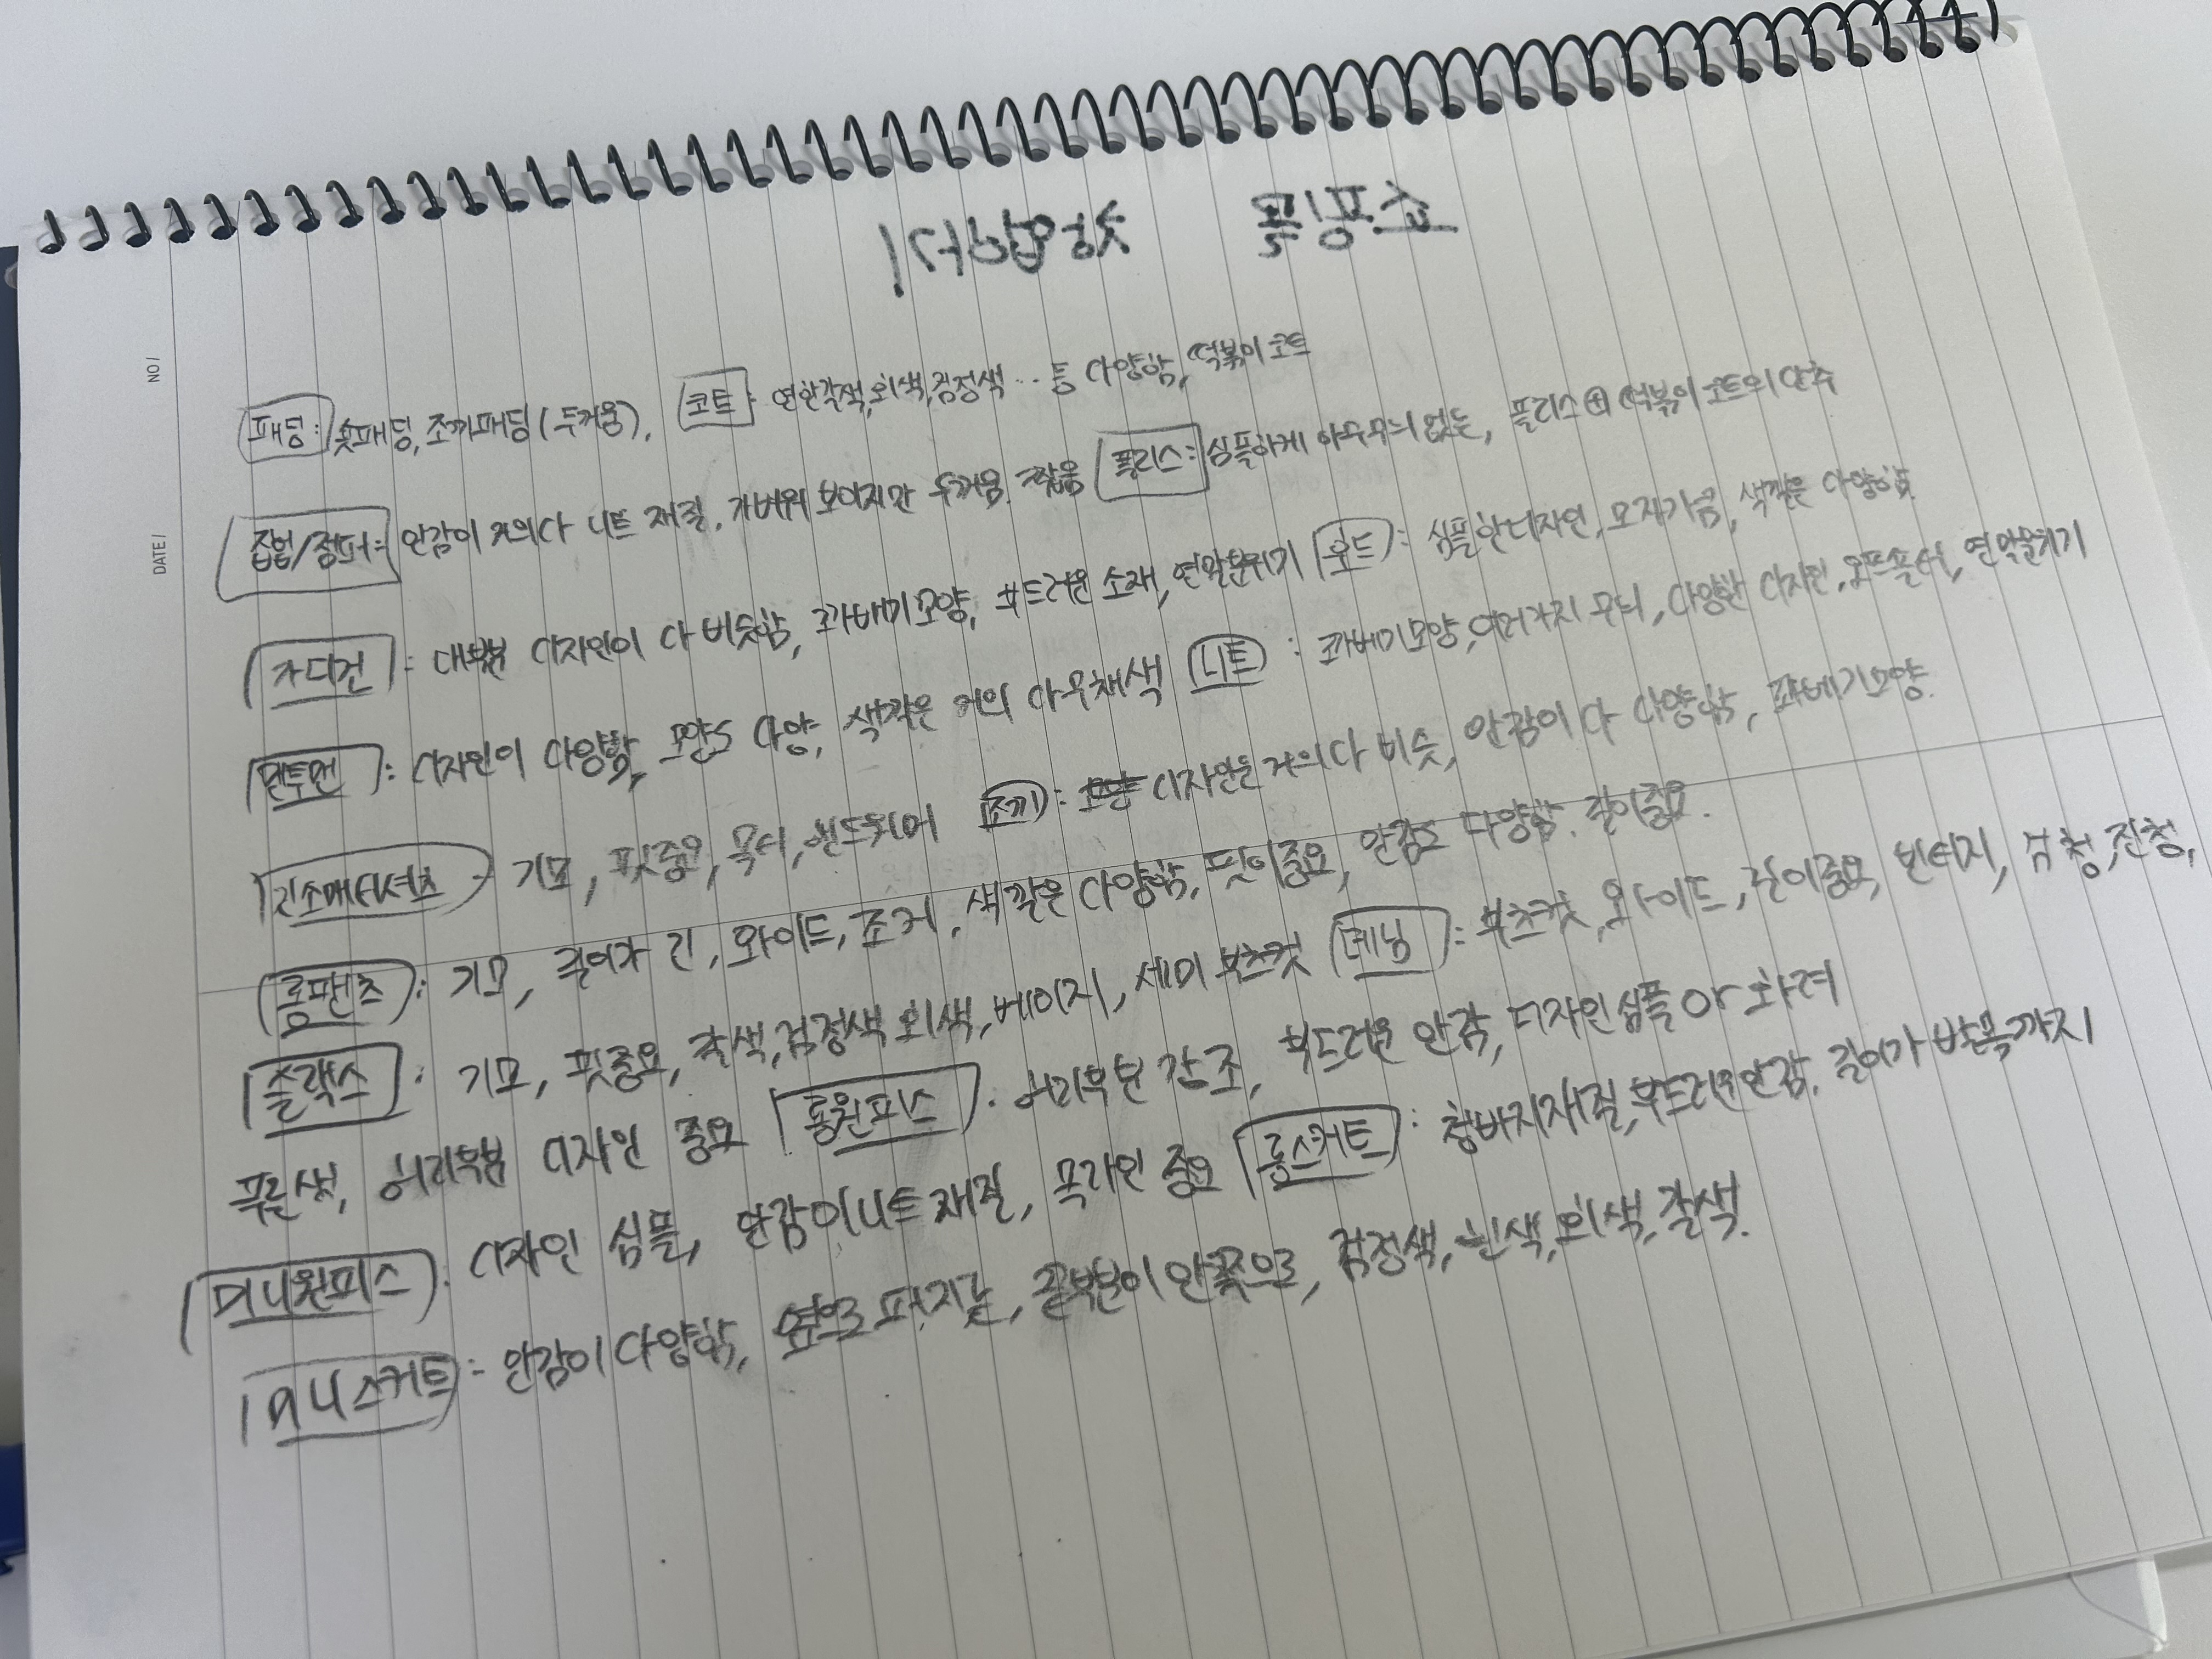 쇼핑몰 창업하기
NO/
DATE/
패딩: 숏패딩, 조끼패딩(두꺼움), 코트: 연한갈색, 회색, 검정색... 등 다양함, 떡볶이 코트
집업/점퍼: 안감이 거의다 니트 재질, 가벼워 보이지만 두꺼움. 플리스: 심플하게 아무무늬 없는, 플리스⊕떡볶이 코트의 단추
가디건: 대부분 디자인이 다 비슷함, 꽈배기모양, 부드러운 소재, 연말분위기 후드: 심플한디자인, 모자기능, 색깔은 다양함
맨투맨: 디자인이 다양함, 모양도 다양, 색깔은 거의 다 무채색 니트: 꽈배기모양, 여러가지 무늬, 다양한 디자인, 오프숄더, 연말분위기
긴소매티셔츠: 기모, 핏중요, 목티, 조끼: 디자인은 거의다 비슷, 안감이 다 다양함, 꽈배기모양.
롱팬츠: 기모, 길이가 긴, 와이드, 조거, 색깔은 다양함, 핏이중요, 안감도 다양함. 길이중요.
슬랙스: 기모, 핏중요, 갈색, 검정색, 회색, 베이지, 세미 부츠컷 데님: 부츠컷, 와이드, 길이중요, 빈티지, 흑청, 진청,
푸른색, 허리부분 디자인 중요 롱원피스: 허리부분 강조, 부드러운 안감, 디자인 심플 or 화려
미니원피스: 디자인 심플, 안감이니트재질, 목라인 중요 롱스커트: 청바지재질, 부드러운안감, 길이가 발목까지
미니스커트: 안감이 다양함, 옆으로 퍼지는, 끝부분이 안쪽으로, 검정색, 흰색, 회색, 갈색.